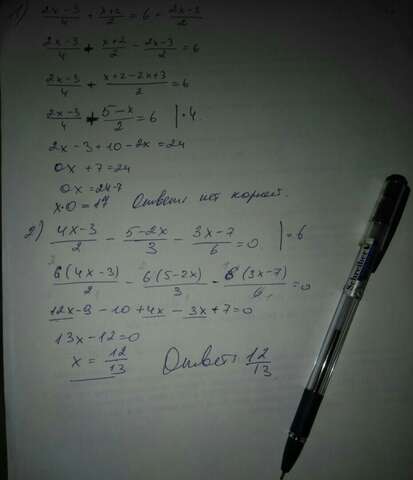 1) (2x-3)/4 + (x+2)/2 = 6 + (2x-3)/2
(2x-3)/4 + (x+2)/2 - (2x-3)/2 = 6
(2x-3)/4 + (x+2-2x+3)/2 = 6
(2x-3)/4 + (5-x)/2 = 6 |·4
2x-3+10-2x=24
0x+7=24
0x=24-7
x·0=17 Ответ: нет корней.
2) (4x-3)/2 - (5-2x)/3 - (3x-7)/6 = 0 |·6
6(4x-3)/2 - 6(5-2x)/3 - 6(3x-7)/6 = 0
12x-9-10+4x-3x+7=0
13x-12=0
x = 12/13 Ответ: 12/13
Schneider